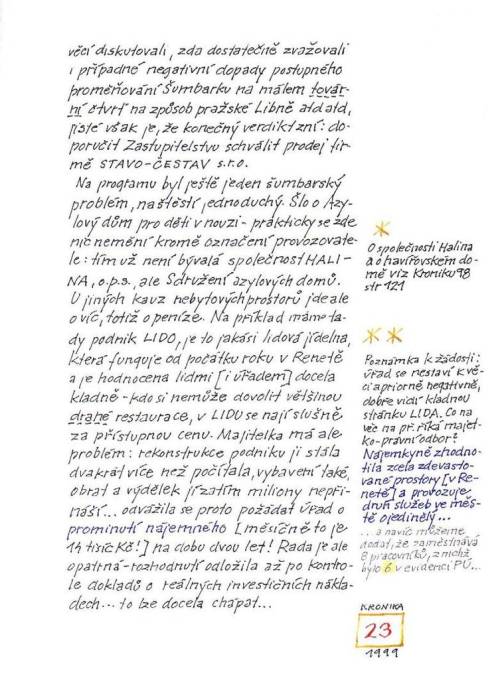 věcí diskutovali, zda dostatečně zvažovali
i případné negativní dopady postupného
proměňování Šumbarku na málem továr-
ní čtvrť na způsob pražské Libně atd atd,
jisté však je, že konečný verdikt zní: do-
poručit Zastupitelstvu schválit prodej fir-
mě STAVO-ČESTAV s.r.o.
Na programu byl ještě jeden šumbarský
problém, naštěstí jednoduchý. Šlo o Azy-
lový dům pro děti v nouzi - prakticky se zde
nic nemění kromě označení provozovate-
le: tím už není bývalá společnost HALI-
NA, o.p.s., ale Sdružení azylových domů.
U jiných kauz nebytových prostorů jde ale
o víc, totiž o peníze. Na příklad máme ta-
dy podnik LIDO, je to jakási lidová jídelna,
která funguje od počátku roku v Renetě
a je hodnocena lidmi [i úřadem] docela
kladně - kdo si nemůže dovolit většinou
drahé restaurace, v LIDU se nají slušně
za přístupnou cenu. Majitelka má ale
problém: rekonstrukce podniku ji stála
dvakrát více než počítala, vybavení také,
obrat a výdělek jí zatím miliony nepři-
náší... odvážila se proto požádat úřad o
prominutí nájemného [měsíčně to je
14 tisíc Kč!] na dobu dvou let! Rada je ale
opatrná - rozhodnutí odložila až po kontro-
le dokladů o reálných investičních nákla-
dech... to lze docela chápat...
*
O společnosti Halina
a o havířovském do-
mě viz Kroniku 98
str 121
**
Poznámka k žádosti:
úřad se nestaví k vě-
ci apriorně negativně,
dobře vidí kladnou
stránku LIDA. Co na
věc na př. říká majet-
ko-právní odbor?
Nájemkyně zhodno-
tila zcela zdevasto-
vané prostory [v Re-
netě] a provozuje
druh služeb ve měs-
tě ojedinělý...
... a navíc můžeme
dodat, že zaměstnává
8 pracovníků, z nichž
bylo 6 v evidenci PÚ...
KRONIKA
23
1999